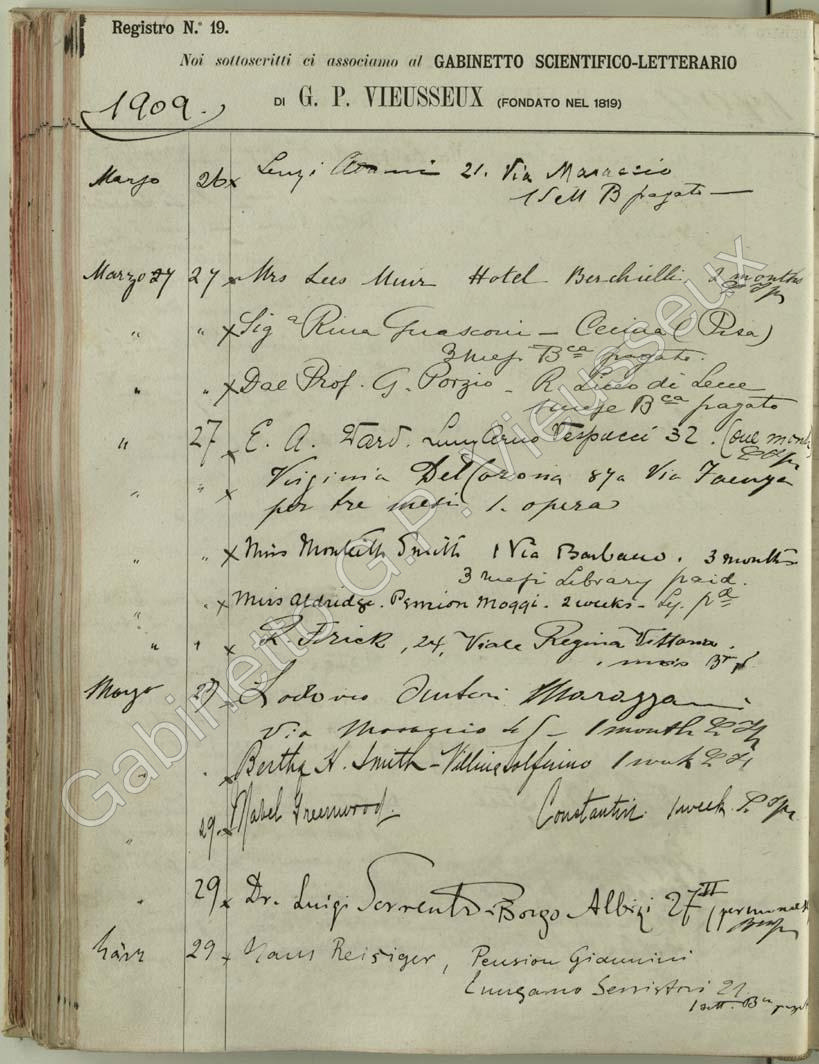 Registro N.º 19.
Noi sottoscritti ci associamo al GABINETTO SCIENTIFICO-LETTERARIO
1909.
DI G. P. VIEUSSEUX (FONDATO NEL 1819)
Marzo 26 x 21. Via Masaccio
1 Sett B pagato
Marzo 27 27 x Mrs Lees Muir Hotel Berchielli 2 months
" " x Sigª Rina Guasconi - Cecina (Pisa)
3 mesi Bca pagato.
" " x Dal Prof. G. Porzio - R. Liceo di Lecce
1 mese Bca pagato
" 27 x E. A. Ward. Lung'Arno Vespucci 32. (one month
" " x Virginia Del Corona 87a Via Faenza
per tre mesi 1. opera
" " x Miss Monteith Smith 1 Via Barbano. 3 months
3 mesi Library paid.
" " x Miss Aldridge. Pension Moggi. 2 weeks
" " x 24, Viale Regina Vittoria.
1 mois
Marzo Lodovico Marazzani
Via Masaccio 1 month
" " x Bertha H. Smith - Solferino 1 week
" 29. x Mabel Greenwood. 1 week
" 29 x Dr. Luigi Sorrento - Borgo Albizi 27 II
März 29 x Hans Reisiger, Pension Giannini
Lungarno Serristori 21.
1 sett. Bca pagat
Gabinetto G.P. Vieusseux